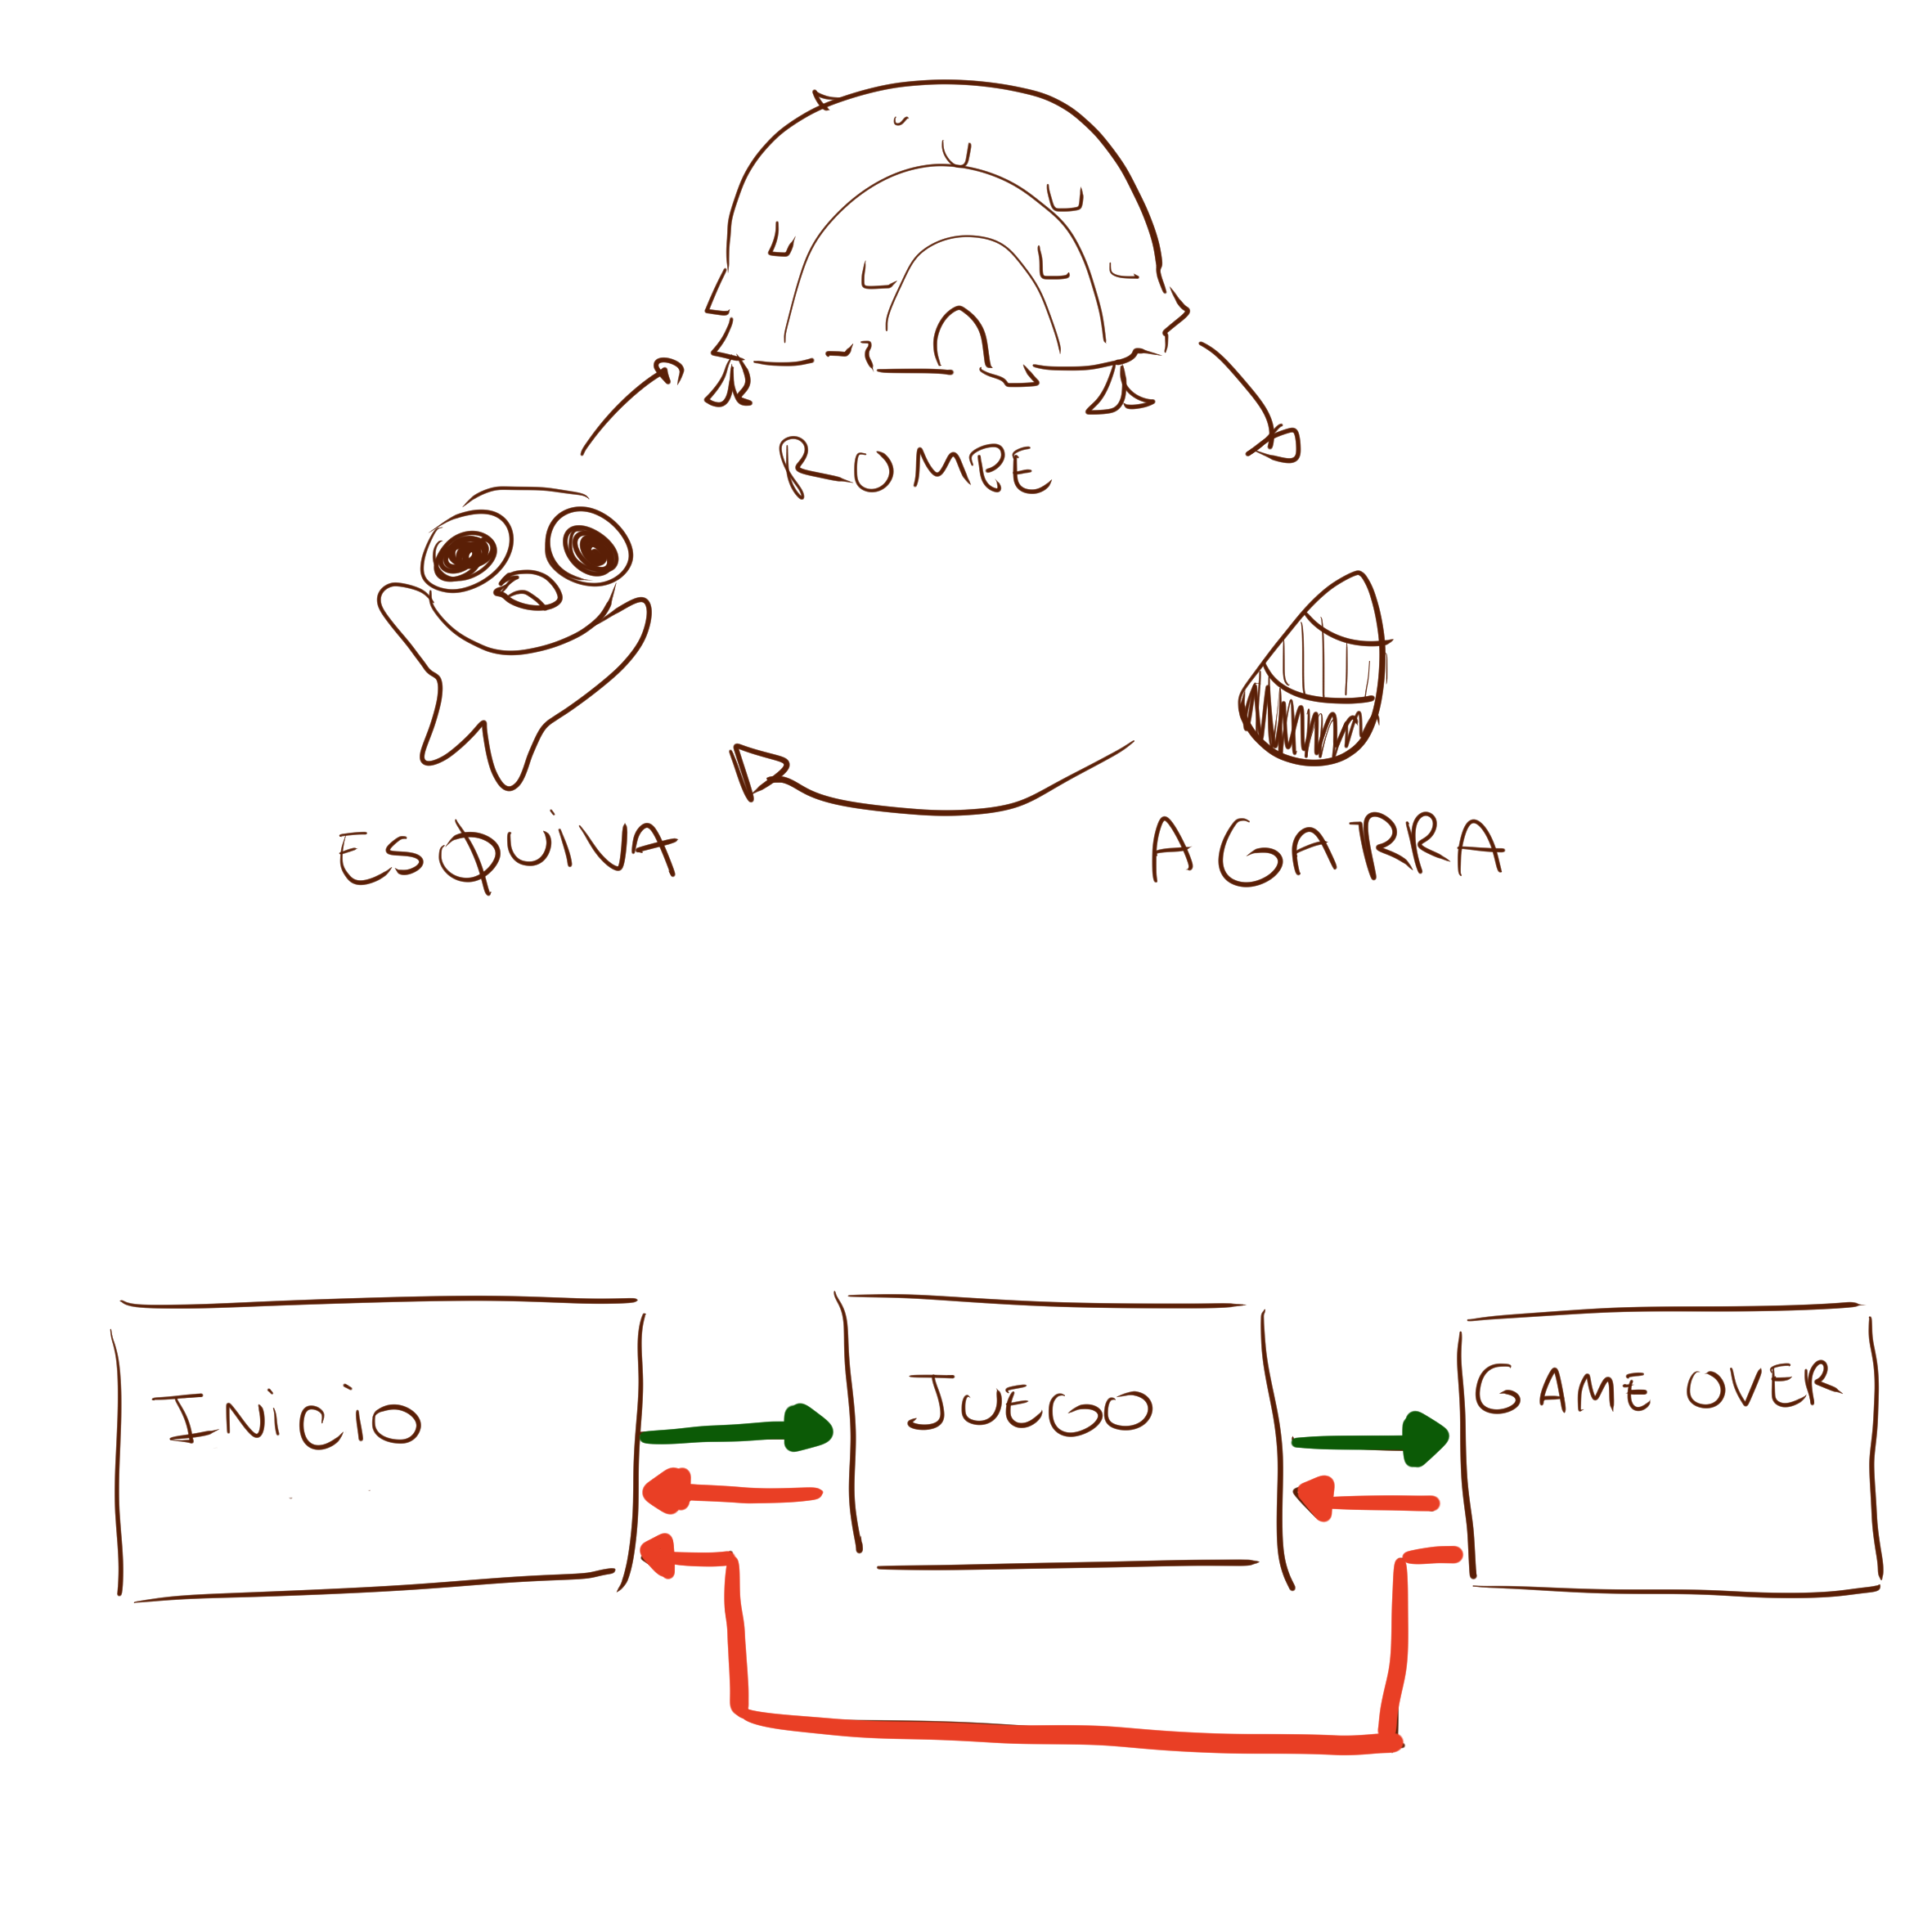 ROMPE
ESQUIVA
AGARRA
INICIO
JUEGO
GAME OVER